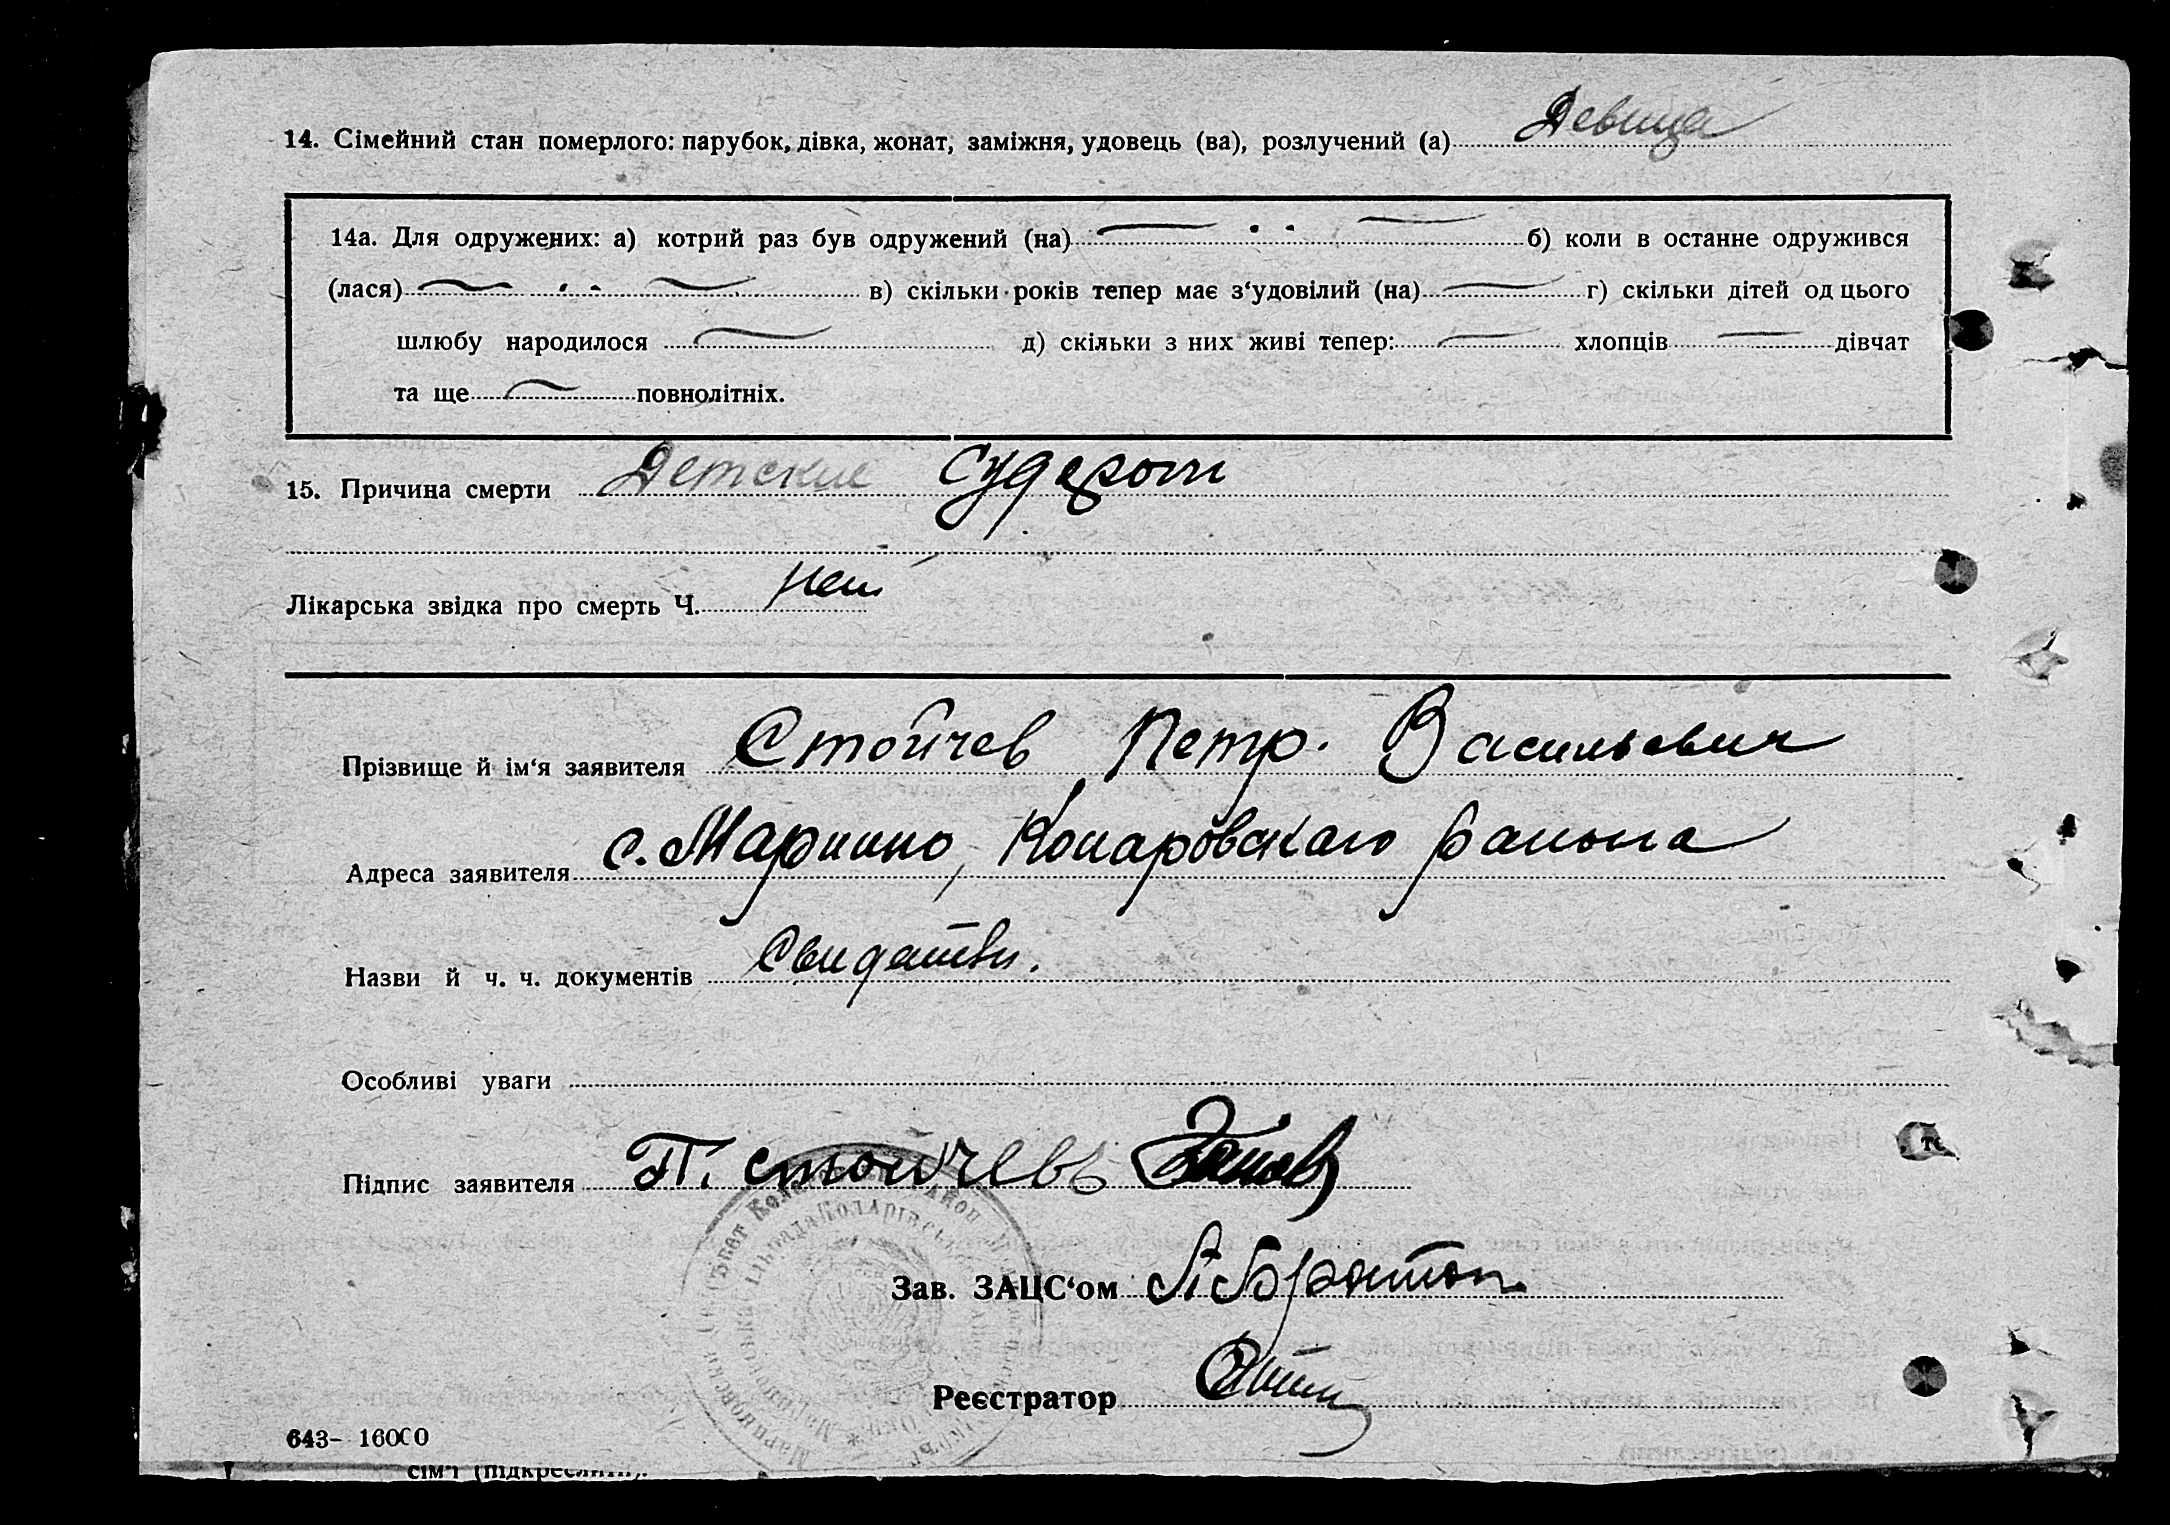 14. Сімейний стан померлого: парубок, дівка, жонат, заміжня, удовець (ва), розлучений (а) Девица
14а. Для одружених: а) котрий раз був одружений (на) б) коли в останне одружився
(лася) в) скільки років тепер має з‘удовілий (на) г) скільки дітей од цього
шлюбу народилося д) скільки з них живі тепер: хлопців дівчат
та ще повнолітніх.
15. Причина смерти Детские судороги
Лікарська звідка про смерть Ч. нет
Прізвище й ім‘я заявителя Стойчев Петр. Васильевич
Адреса заявителя с. Мариино, Коларовскаго района
Назви й ч. ч. документів
Особливі уваги
Підпис заявителя П. Стойчевъ
Зав. ЗАЦС‘ом
Реєстратор
643- 16000
сім'ї (підкреслити).